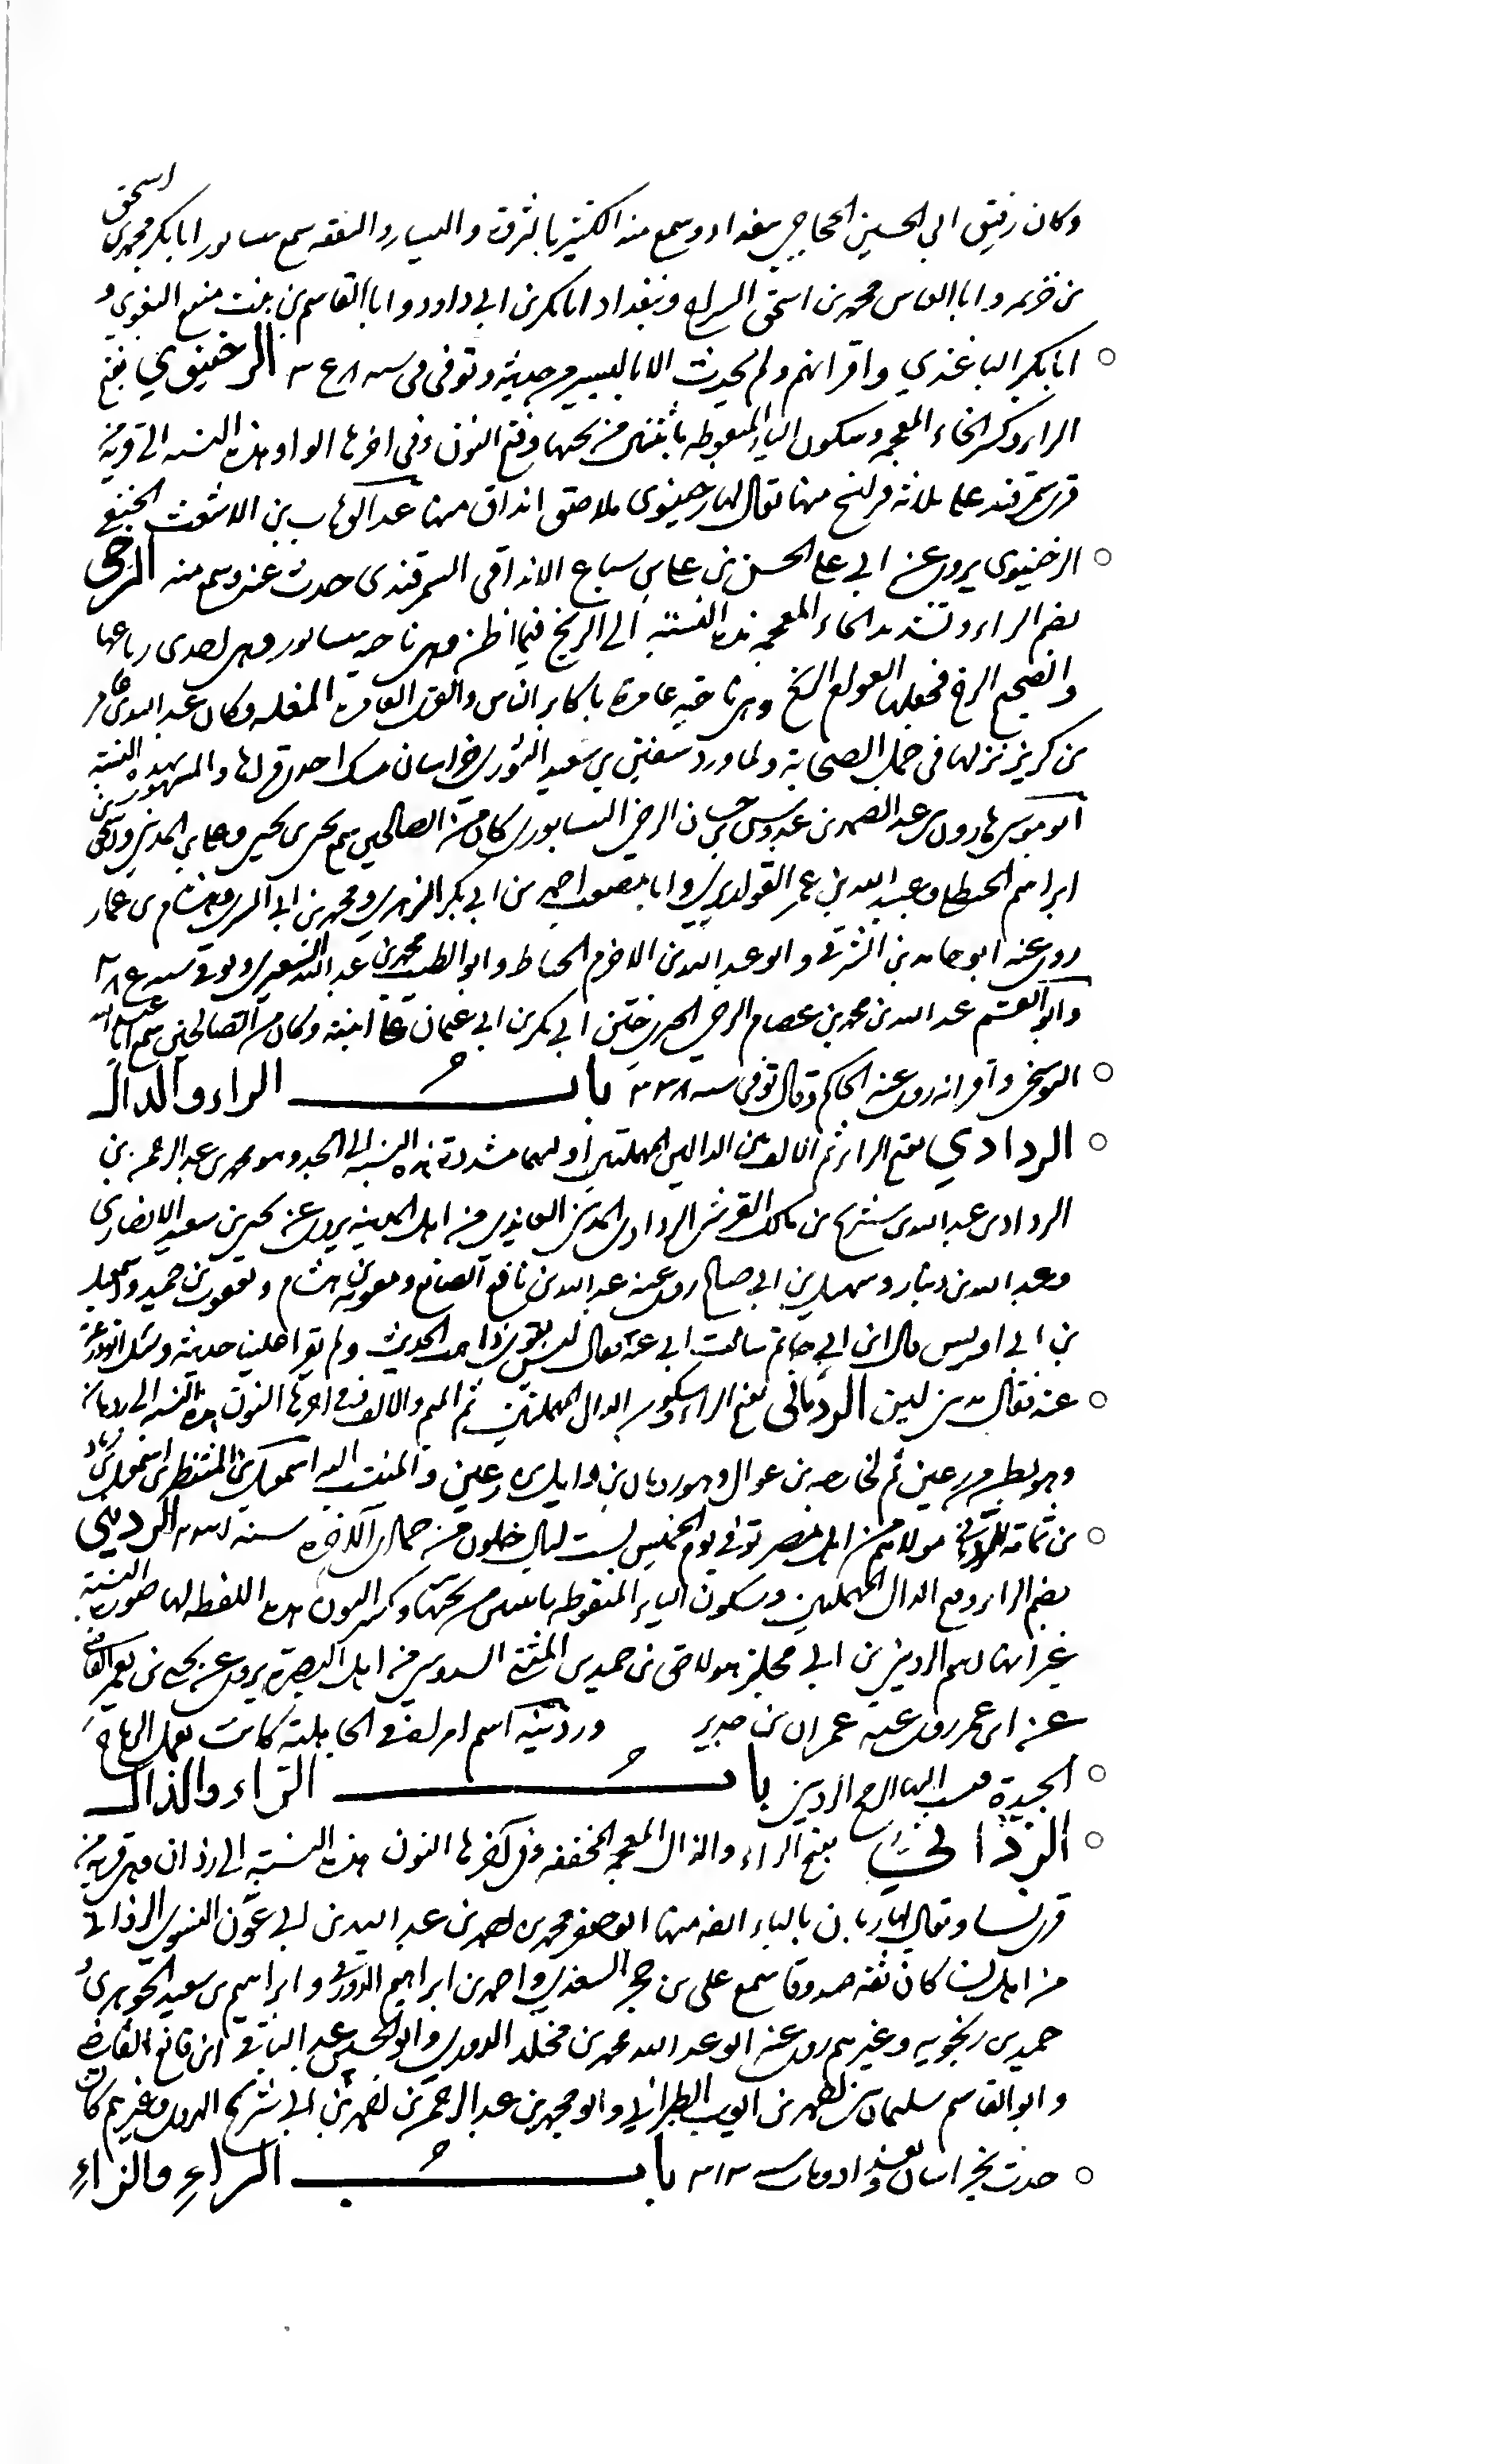 وكان رفيق ابي الحسين الحجاجي ببغداد وسمع منه الكثير بالثروة واليسار والتفقه سمع بنيسابور ابا بكر محمد بن اسحق
بن خزيمه وابا العباس محمد بن اسحق السراج وببغداد ابا بكر بن ابي داود وابا القاسم بن بنت منيع البغوي و
ابا بكر الباغندي واقرانهم ولم يحدث الا باليسير من حديثه وتوفى في سنه الرخينوي بفتح
الراء وكسر الخاء المعجمه وسكون الياء المنقوطه باثنتين من تحتها وفتح النون وفي اخرها الواو هذه النسبه الى قرية من
قرى سمرقند على ثلاثة فراسخ منها يقال لها رخينوى ملاصق انداق منها عبد الوهاب بن الاشعث الحنفي
الرخينوى يروى عن ابي علي الحسن بن علي بن سباع الانداقي السمرقندى حدث عنه وسمع منه الرخى
بضم الراء وتشديد الخاء المعجمه هذه النسبه الى الريخ فيما اظن وهى ناحيه بنيسابور وهى احدى رباعها
والصحيح الرخ فجعلها العوام الريخ وهى ناحيه عامرة باكابر الناس والقرى المغله وكان عبد الله بن عامر
بن كريز نزلها في جمله الصحابة ولما ورد سفين بن سعيد الثورى خراسان سكن احدى قراها والمشهور بهذه النسبه
ابو موسى هارون بن عبد الصمد بن عبدوس بن حسان الرخى النيسابورى كان من الصالحين سمع يحيى بن يحيى وعلي بن المدينى واسحق بن
ابراهيم الحنظلى وعبيد الله بن عمر القواريرى وابا مصعب احمد بن ابي بكر الزهرى ومحمد بن ابي السرى وهشام بن عمار
روى عنه ابو حامد بن الشرقي وابو عبد الله بن الاخرم الحافظ وابو الطيب محمد بن عبد الله الشعيرى وتوفي سنه
وابو القسم عبد الله بن محمد بن عصام الرخى الحيرى ختن ابي بكر بن ابي عثمان على ابنته وكان من الصالحين سمع ابا عبد الله
البوسنجى واقرانه روى عنه الحاكم وقال توفى سنه ٣٣٨ باب الراء والدال
الردادي بفتح الراء ثم الالف بين الدالين المهملتين اولهما مشددة هذه النسبه الى الجد وهو محمد بن عبد الرحمن بن
الردادى عبد الله بن شريح بن مالك القرشى الردادى المدينى العامرى من اهل المدينه يروى عن يحيى بن سعيد الانصارى
وعبد الله بن دينار وسهيل بن ابي صالح روى عنه عبد الله بن نافع الصائغ ومعويه بن هشام ويعقوب بن حميد واسمعيل
بن ابي اويس قال ابن ابي حاتم سالت ابي عنه فقال ليس بقوى ذاهب الحديث ولم يقرا علينا حديثه وسئل ابو زرعه
عنه فقال مدينى لين الردمانى بفتح الراء وسكون الدال المهملتين ثم الميم والالف وفي اخرها النون هذه النسبه الى ردمان
وهو بطن من رعين ثم لخارجه بن عوال وهو ردمان بن وايل بن رعين والمنتسب اليه اسمعيل بن المنتظر بن اسمعيل بن زياد
بن ثمامه الردمانى مولاهم من اهل مصر توفي يوم الخميس لست ليال خلون من جمادى الاخرة سنة الردينى
بضم الراء وفتح الدال المهملتين وسكون الياء المنقوطه باثنتين من تحتها وكسر النون هذه اللفظه لها صورة النسبة
غير انها اسم الردينى بن ابي مجلز هو لاحق بن حميد بن المثنى السدوسى من اهل البصرة يروى عن يحيى بن يعمر القاضى
عن ابن عمر روى عنه عمران بن حدير وردينه اسم امراة في الجاهلية كانت تعمل الرماح
الجيدة فنسب اليها الرمح الردينى باب الراء والذال
الرذاني بفتح الراء والذال المعجمه المخففه وفي اخرها النون هذه النسبة الى رذان وهى قرية من
قرى نسا ويقال لها ريان بالياء ايضه منها ابو جعفر محمد بن احمد بن عبد الله بن ابي عون النسوى الرذانى
من اهل نسا كان ثقه صدوقا سمع على بن حجر السعدى واحمد بن ابراهيم الدورقى وابراهيم بن سعيد الجوهرى و
حميد بن زنجويه وغيرهم روى عنه ابو عبد الله محمد بن مخلد الدورى وابو الحسين عبد الباقي ابن قانع القاضى
وابو القاسم سليمان بن احمد بن ايوب الطبراني وابو محمد بن عبد الرحمن بن احمد بن ابي شريح الهروى وغيرهم كان
حدث بخراسان وبغداد ومات سنه ٣١٣ باب الراء والزاء